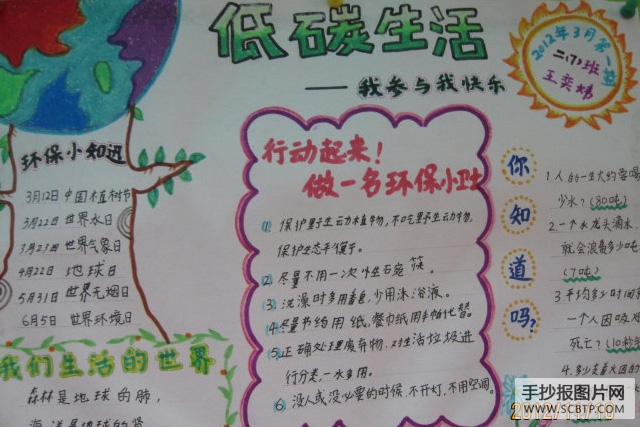 低碳生活
——我参与我快乐
2012年3月第一期
二(7)班
王奕
环保小知识
3月12日 中国植树节
3月22日 世界水日
3月23日 世界气象日
4月22日 地球日
5月31日 世界无烟日
6月5日 世界环境日
我们生活的世界
森林是地球的肺,
海洋是地球的肾
行动起来!
做一名环保小卫士
1. 保护野生动植物,不吃野生动物,
保护生态平衡于。
2. 尽量不用一次性生碗筷。
3. 洗澡时多用香皂,少用沐浴液。
4. 尽量节约用纸,餐巾纸用手帕代替。
5. 正确处理废弃物,对生活垃圾进
行分类,一水多用。
6. 没人或没必要的时候,不开灯,不用空调。
你知道吗?
1. 人的一生大约要喝
少水?(80吨)
2. 一个水龙头滴水,
就会浪费多少吨
(7吨)
3. 平均多少时间
一个人因吸
死亡?(10秒
4. 多少
2012/11/10
手抄报图片网
WWW.SCBTP.COM